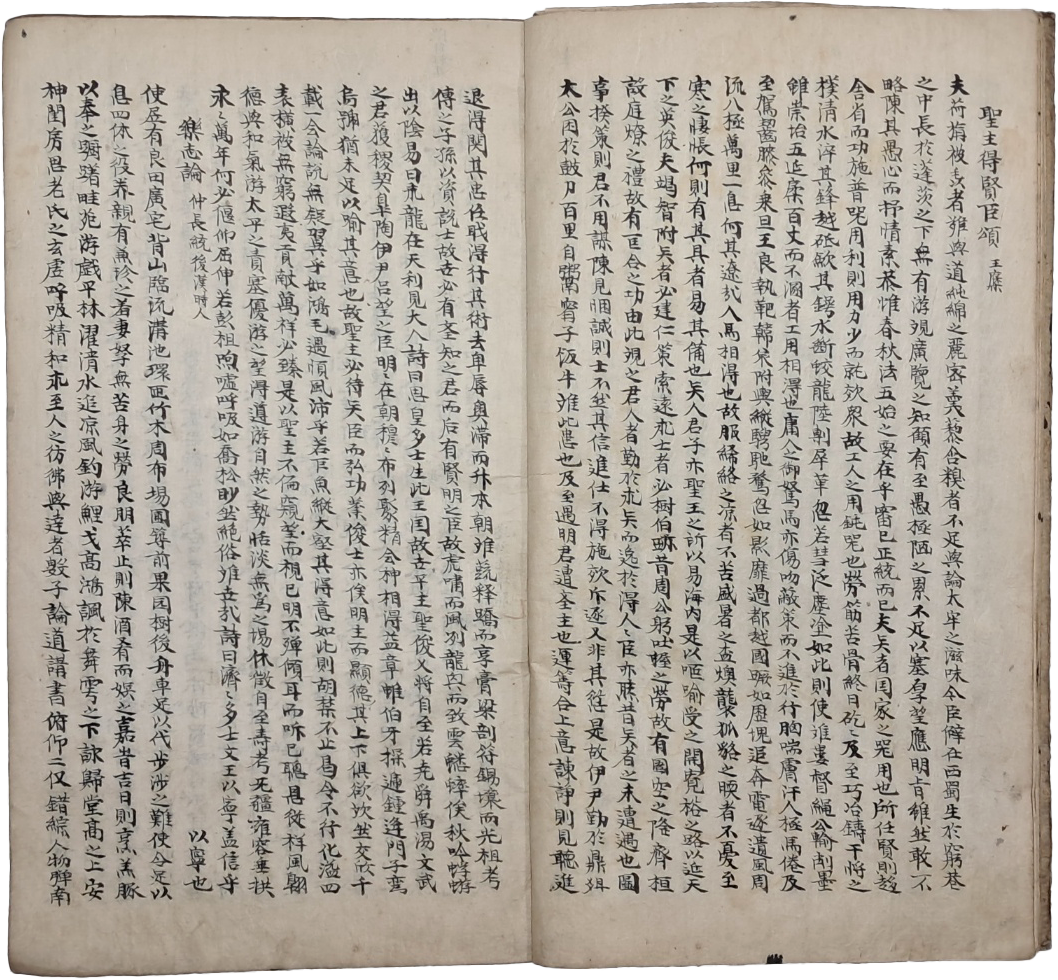 聖主得賢臣頌 王褒
夫荷旃被毳者難與道純綿之麗密羹藜含糗者不足與論太牢之滋味今臣僻在西蜀生於窮巷
之中長於蓬茨之下無有游覌廣覽之知顧有至愚極陋之累不足以塞厚望應明旨雖然敢不
略陳其愚心而抒情素恭惟春秋法五始之要在乎審已正統而已夫矣者国家之器用也所任賢則趍
舍省而功施普器用利則用力少而就效衆故工人之用鈍器也勞筋苦骨終日矻〻及至巧冶鑄干將之
樸清水淬其鋒越砥歛其鍔水斷蛟龍陸剸犀革忽若彗泛塵塗如此則使離婁督繩公輸削墨
雖崇台五延袤百丈而不溷者工用相得也庸人之御駑馬亦傷吻敝策而不進於行胸喘膚汗人極馬倦及
至駕齧膝參乗旦王良執靶韓哀附輿縱騁馳騖忽如影靡過都越國蹶如歷塊追奔電逐遺風周
流八極萬里一息何其遼哉人馬相得也故服絺綌之凉者不苦盛暑之鬱燠襲狐貉之暖者不憂至
寒之悽悵何則有其具者易其備也矣人君子亦聖王之所以易海内是以嘔喻受之開寛裕之路以延天
下之英俊夫竭智附矣者必建仁策索遠求士者必樹伯跡昔周公躬吐握之勞故有圄空之隆齊桓
設庭燎之禮故有匡合之功由此覌之君人者勤於求矣而逸於得人〻臣亦然昔矣者之未遭遇也圖
事揆策則君不用謀陳見悃誠則士不然其信進仕不得施效斥逐又非其愆是故伊尹勤於鼎俎
太公困於鼓刀百里自鬻甯子飯牛離此患也及至遇明君遭圣主也運筭合上意諫諍則見聽進
退得関其忠任职得行其術去卑辱奥滞而升本朝離蔬释蹻而享膏粱剖符錫壤而光祖考
傳之子孫以資説士故世必有圣知之君而后有賢明之臣故虎嘯而風冽龍兴而致雲蟋蟀俟秋吟蜉蝣
出以陰易曰飛龍在天利見大人詩曰思皇多士生此王国故世平主聖俊乂將自至若尭舜禹湯文武
之君獲稷契皐陶伊尹吕望之臣明〻在朝穆〻布列聚精会神相得益章雖伯牙操遞鍾逄門子彎
烏號猶未足以喻其意也故聖主必待矣臣而弘功業俊士亦俟明主而顯德其上下俱欲歡然交欣千
載一会論説無疑翼乎如鴻毛遇順風沛乎若巨魚縱大壑其得意如此則胡禁不止曷令不行化溢四
表橫被無窮遐夷貢献萬祥必臻是以聖主不徧窺望而視已明不殫傾耳而听已聰恩從祥風翱
德與和氣游太平之責塞優游之望得遵游自然之勢恬淡無為之場休徵自至壽考无疆雍容垂拱
永〻萬年何必偃仰屈伸若彭祖呴嘘呼吸如喬松眇然絶俗離世哉詩曰濟〻多士文王以寧盖信乎
以寧也
樂志論 仲長統 後漢時人
使居有良田廣宅背山臨流溝池環匝竹木周布塲圃筑前果园樹後舟車足以代步涉之難使令足以
息四体之役养親有兼珍之膳妻孥無苦身之勞良朋萃止則陳酒肴而娱之嘉時吉日則烹羔豚
以奉之躊躇畦苑游戲平林濯清水追凉風釣游鯉弋高鴻諷於舞雩之下詠歸堂高之上安
神閨房思老氏之玄虚呼吸精和求至人之彷彿與達者數子論道講書俯仰二仪錯綜人物弹南